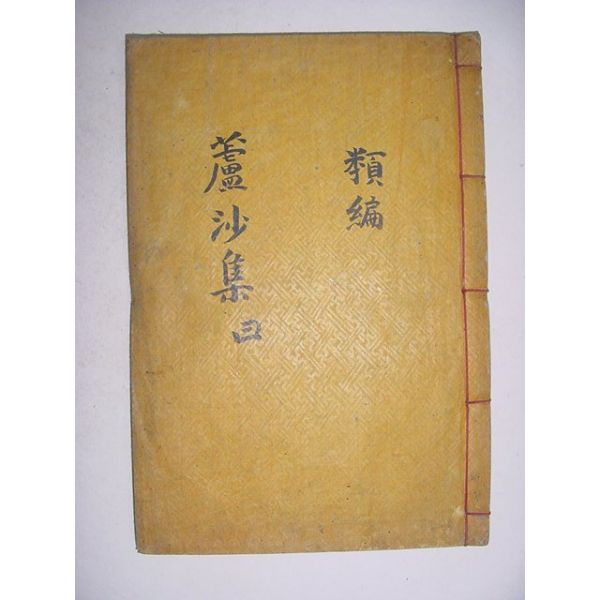 類編
蘆沙集